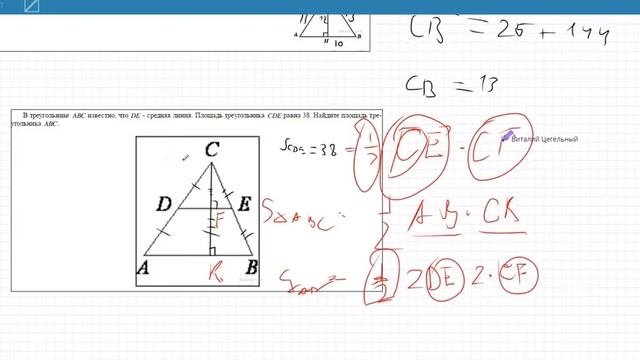 12
13
A H B
10
CB = 25 + 144
CB = 13
В треугольнике ABC известно, что DE - средняя линия. Площадь треугольника CDE равна 38. Найдите площадь тре-
угольника ABC.
C
D E
F
A B
K
S CDE = 38 = 1/2 DE · CF
Виталий Цегельный
S△ABC = 1/2 AB · CK
1/2 2DE 2·CF